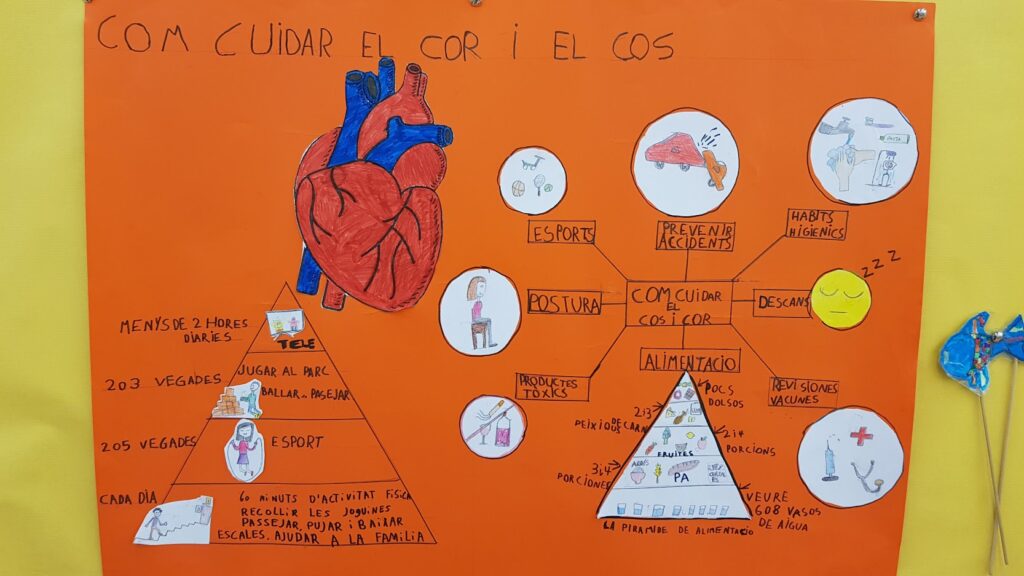 COM CUIDAR EL COR i EL COS
MENYS DE 2 HORES
DIARIES
TELE
2O3 VEGADES
JUGAR AL PARC
BALLAR.. PASEJAR
2O5 VEGADES
ESPORT
CADA DÍA
60 MINUTS D'ACTIVITAT FISICA
RECOLLIR LES JOGUINES
PASSEJAR, PUJAR i BAIXAR
ESCALES, AJUDAR A LA FAMILIA
ESPORTS
PREVENIR
ACCIDENTS
HABITS
HIGIENICS
POSTURA
COM CUIDAR
EL
COS i COR
DESCANS
ZZZ
ALIMENTACIO
PRODUCTES
TOXICS
REVISIONES
VACUNES
POCS
DOLSOS
2i3
PEIX i DOS CARN
2i4
PORCIONS
FRUITES
3i4
PORCIONES
PA
VEURE
6O8 VASOS
DE AIGUA
LA PIRAMIDE DE ALIMENTACIO